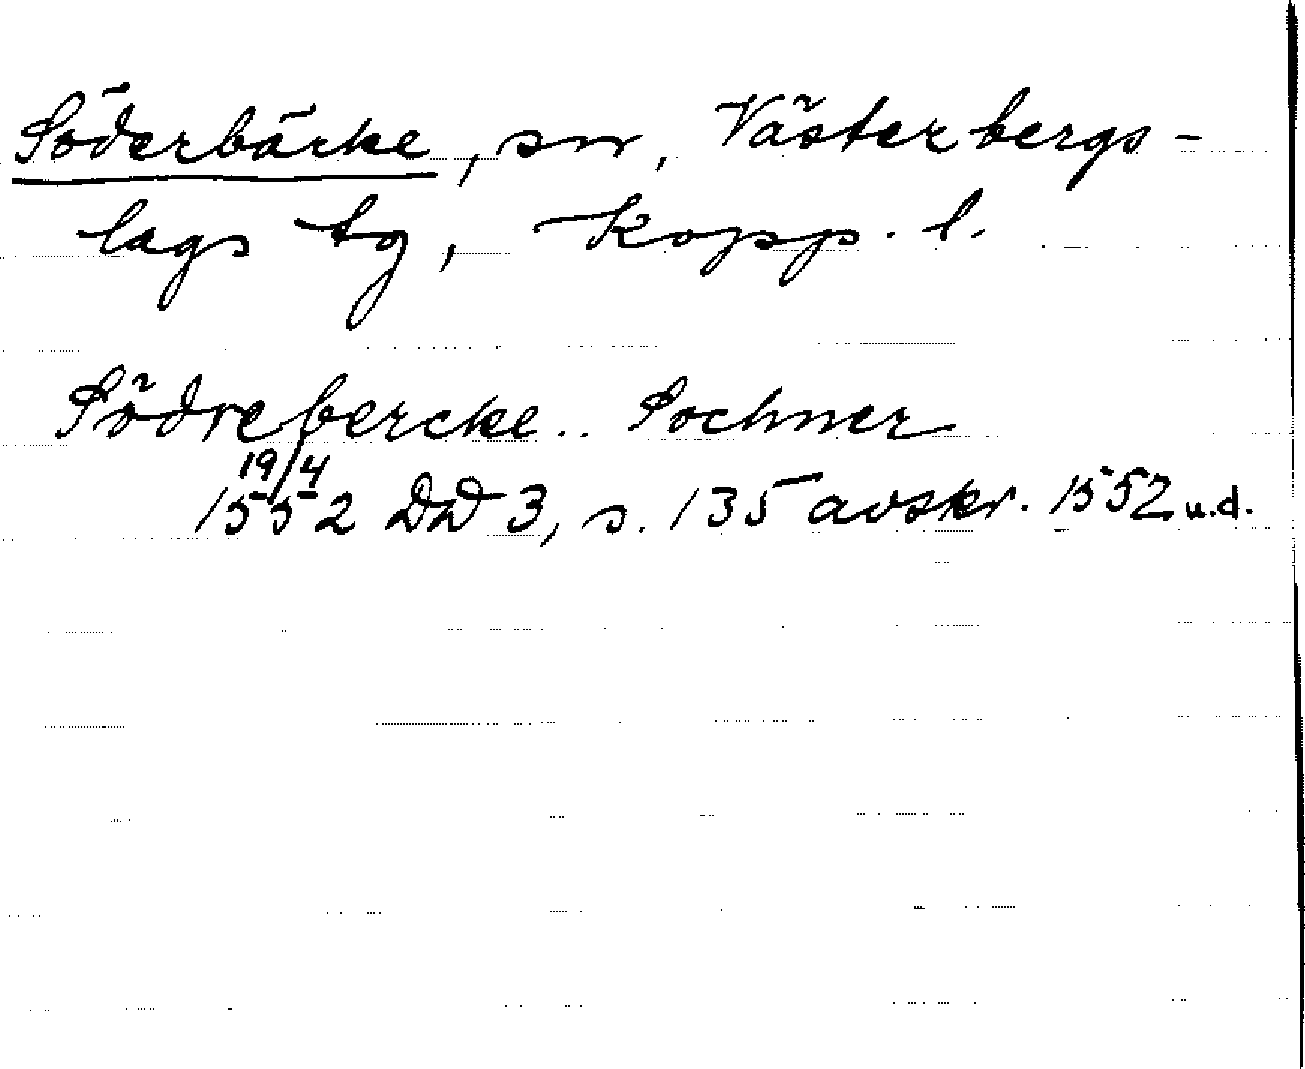 Söderbärke, sn, Västerbergs-
lags tg, Kopp. l.
Södrebercke.. Sochner
19/4
1552 DD 3, s. 135 avskr. 1552 u.d.